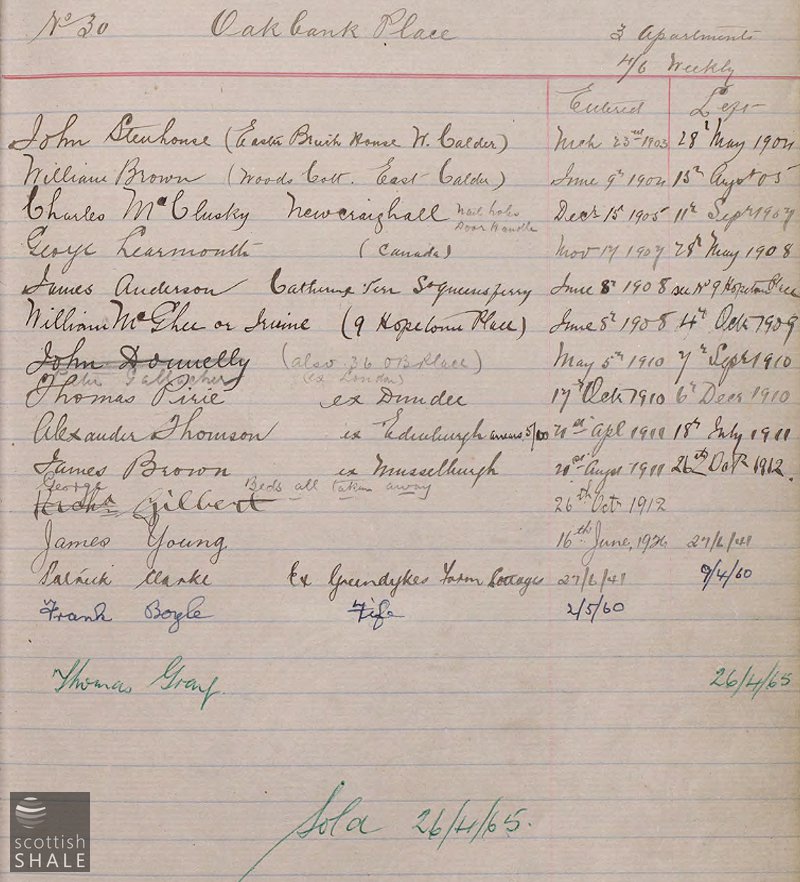 No 30 Oakbank Place 3 Apartments
4/6 Weekly
Entered Left
John Stenhouse (Easter Breich House W. Calder) Mch 23rd 1903 28th May 1904
William Brown (Woods Cott. East Calder) June 9th 1904 15th Augst 05
Charles McClusky Newcraighall Decr 15 1905 11th Sepr 1907
Door Handle
George Learmonth (Canada) Nov 17 1907 28th May 1908
James Anderson Catherine Terr Sqeensferry June 8th 1908 see No 9 Hopetoun Place
William McGhee or Irvine (9 Hopetoun Place) June 8th 1908 14th Octr 1909
John Donnelly (also 36 OB Place) May 5th 1910 7th Sepr 1910
Peter Gallagher (ex London)
Thomas Pirie ex Dundee 17th Octr 1910 6th Decr 1910
Alexander Thomson ex Edinburgh arrears 5/100 21st Apl 1911 18th July 1911
James Brown ex Musselburgh 21st Augst 1911 26th Octr 1912.
George Beds all taken away
Gilbert 26th Octr 1912
James Young 16th June, 1926 27/6/41
Patrick Clarke Ex Greendykes Farm Cottages 27/6/41 9/4/60
Frank Boyle Fife 2/5/60
Thomas Gray. 26/4/65
Sold 26/4/65.
scottish
SHALE